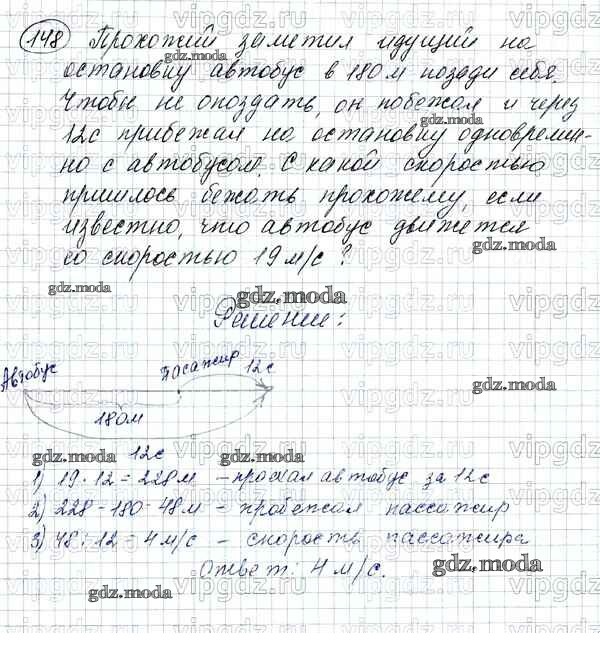 148 Прохожий заметил идущий на
остановку автобус в 180 м позади себя.
Чтобы не опоздать, он побежал и через
12с прибежал на остановку одновремен-
но с автобусом. С какой скоростью
пришлось бежать прохожему, если
известно, что автобус движется
со скоростью 19 м/с ?
Решение:
Автобус Пассажир 12с
180м
12с
1) 19·12=228м – проехал автобус за 12с
2) 228-180=48м – пробежал пассажир
3) 48:12=4 м/с – скорость пассажира
Ответ: 4 м/с.
gdz.moda
vipgdz.ru